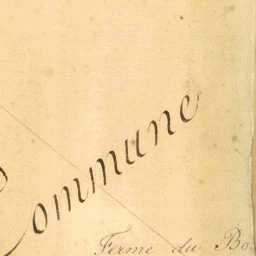 Commune
Ferme du